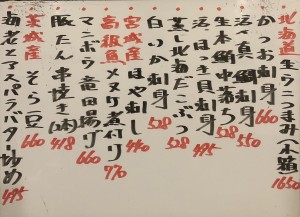 北海道生うにつまみ(小箱) 1650
かつお刺身 660
活〆真鯛刺身 550
生本鮪中落ち 528
活ほっき貝刺身 495
蒸し北海だこぶつ 528
白いか刺身 528
宮城産ほや刺し 440
高級魚メヌケ煮付け 770
マンボウ竜田揚げ 660
豚たん串焼き(2本) 418
茨城産そら豆 660
海老とアスパラバター炒め 495